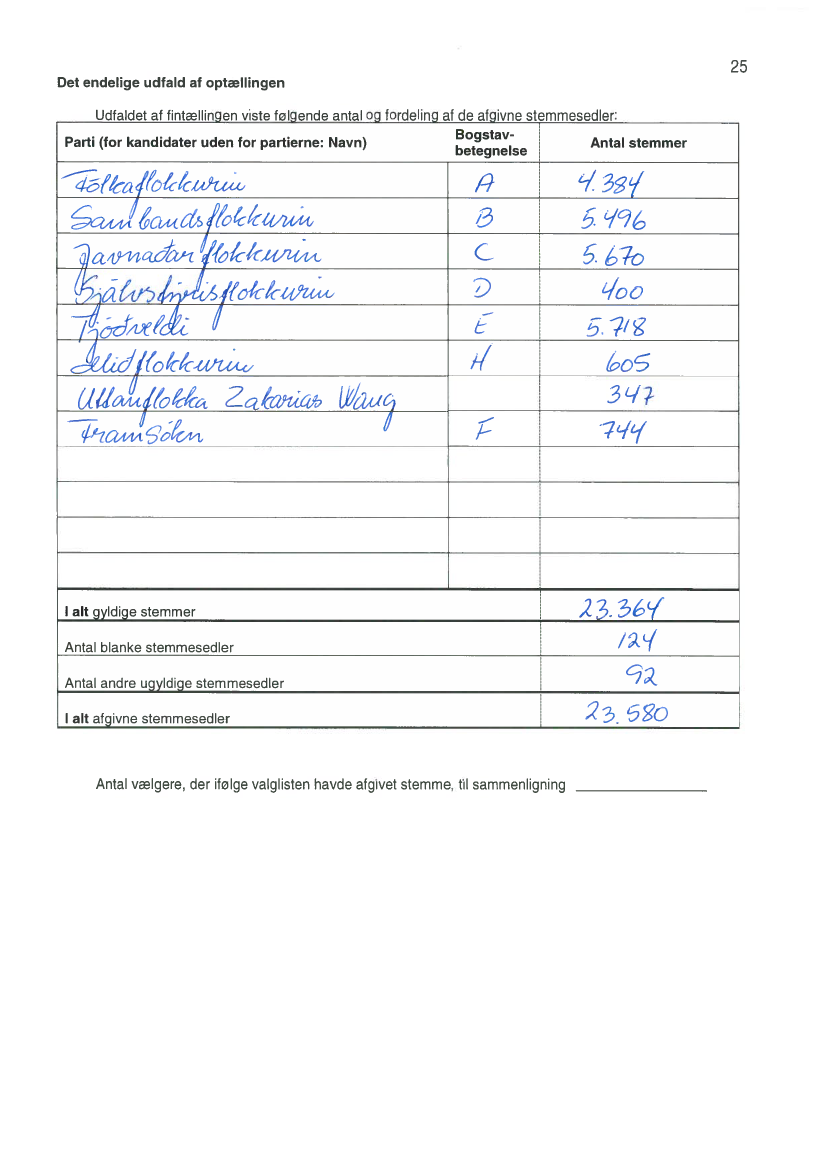 25
Det endelige udfald af optællingen
Udfaldet af fintællingen viste følgende antal og fordeling af de afgivne stemmesedler:
Parti (for kandidater uden for partierne: Navn) Bogstav-betegnelse Antal stemmer
Fólkaflokkurin A 4.384
Sambandsflokkurin B 5.496
Javnaðarflokkurin C 5.670
Sjálvstýrisflokkurin D 400
Tjóðveldi E 5.718
Miðflokkurin H 605
Uttanflokka Zakarias Wang 347
Framsókn F 744
I alt gyldige stemmer 23.364
Antal blanke stemmesedler 124
Antal andre ugyldige stemmesedler 92
I alt afgivne stemmesedler 23.580
Antal vælgere, der ifølge valglisten havde afgivet stemme, til sammenligning